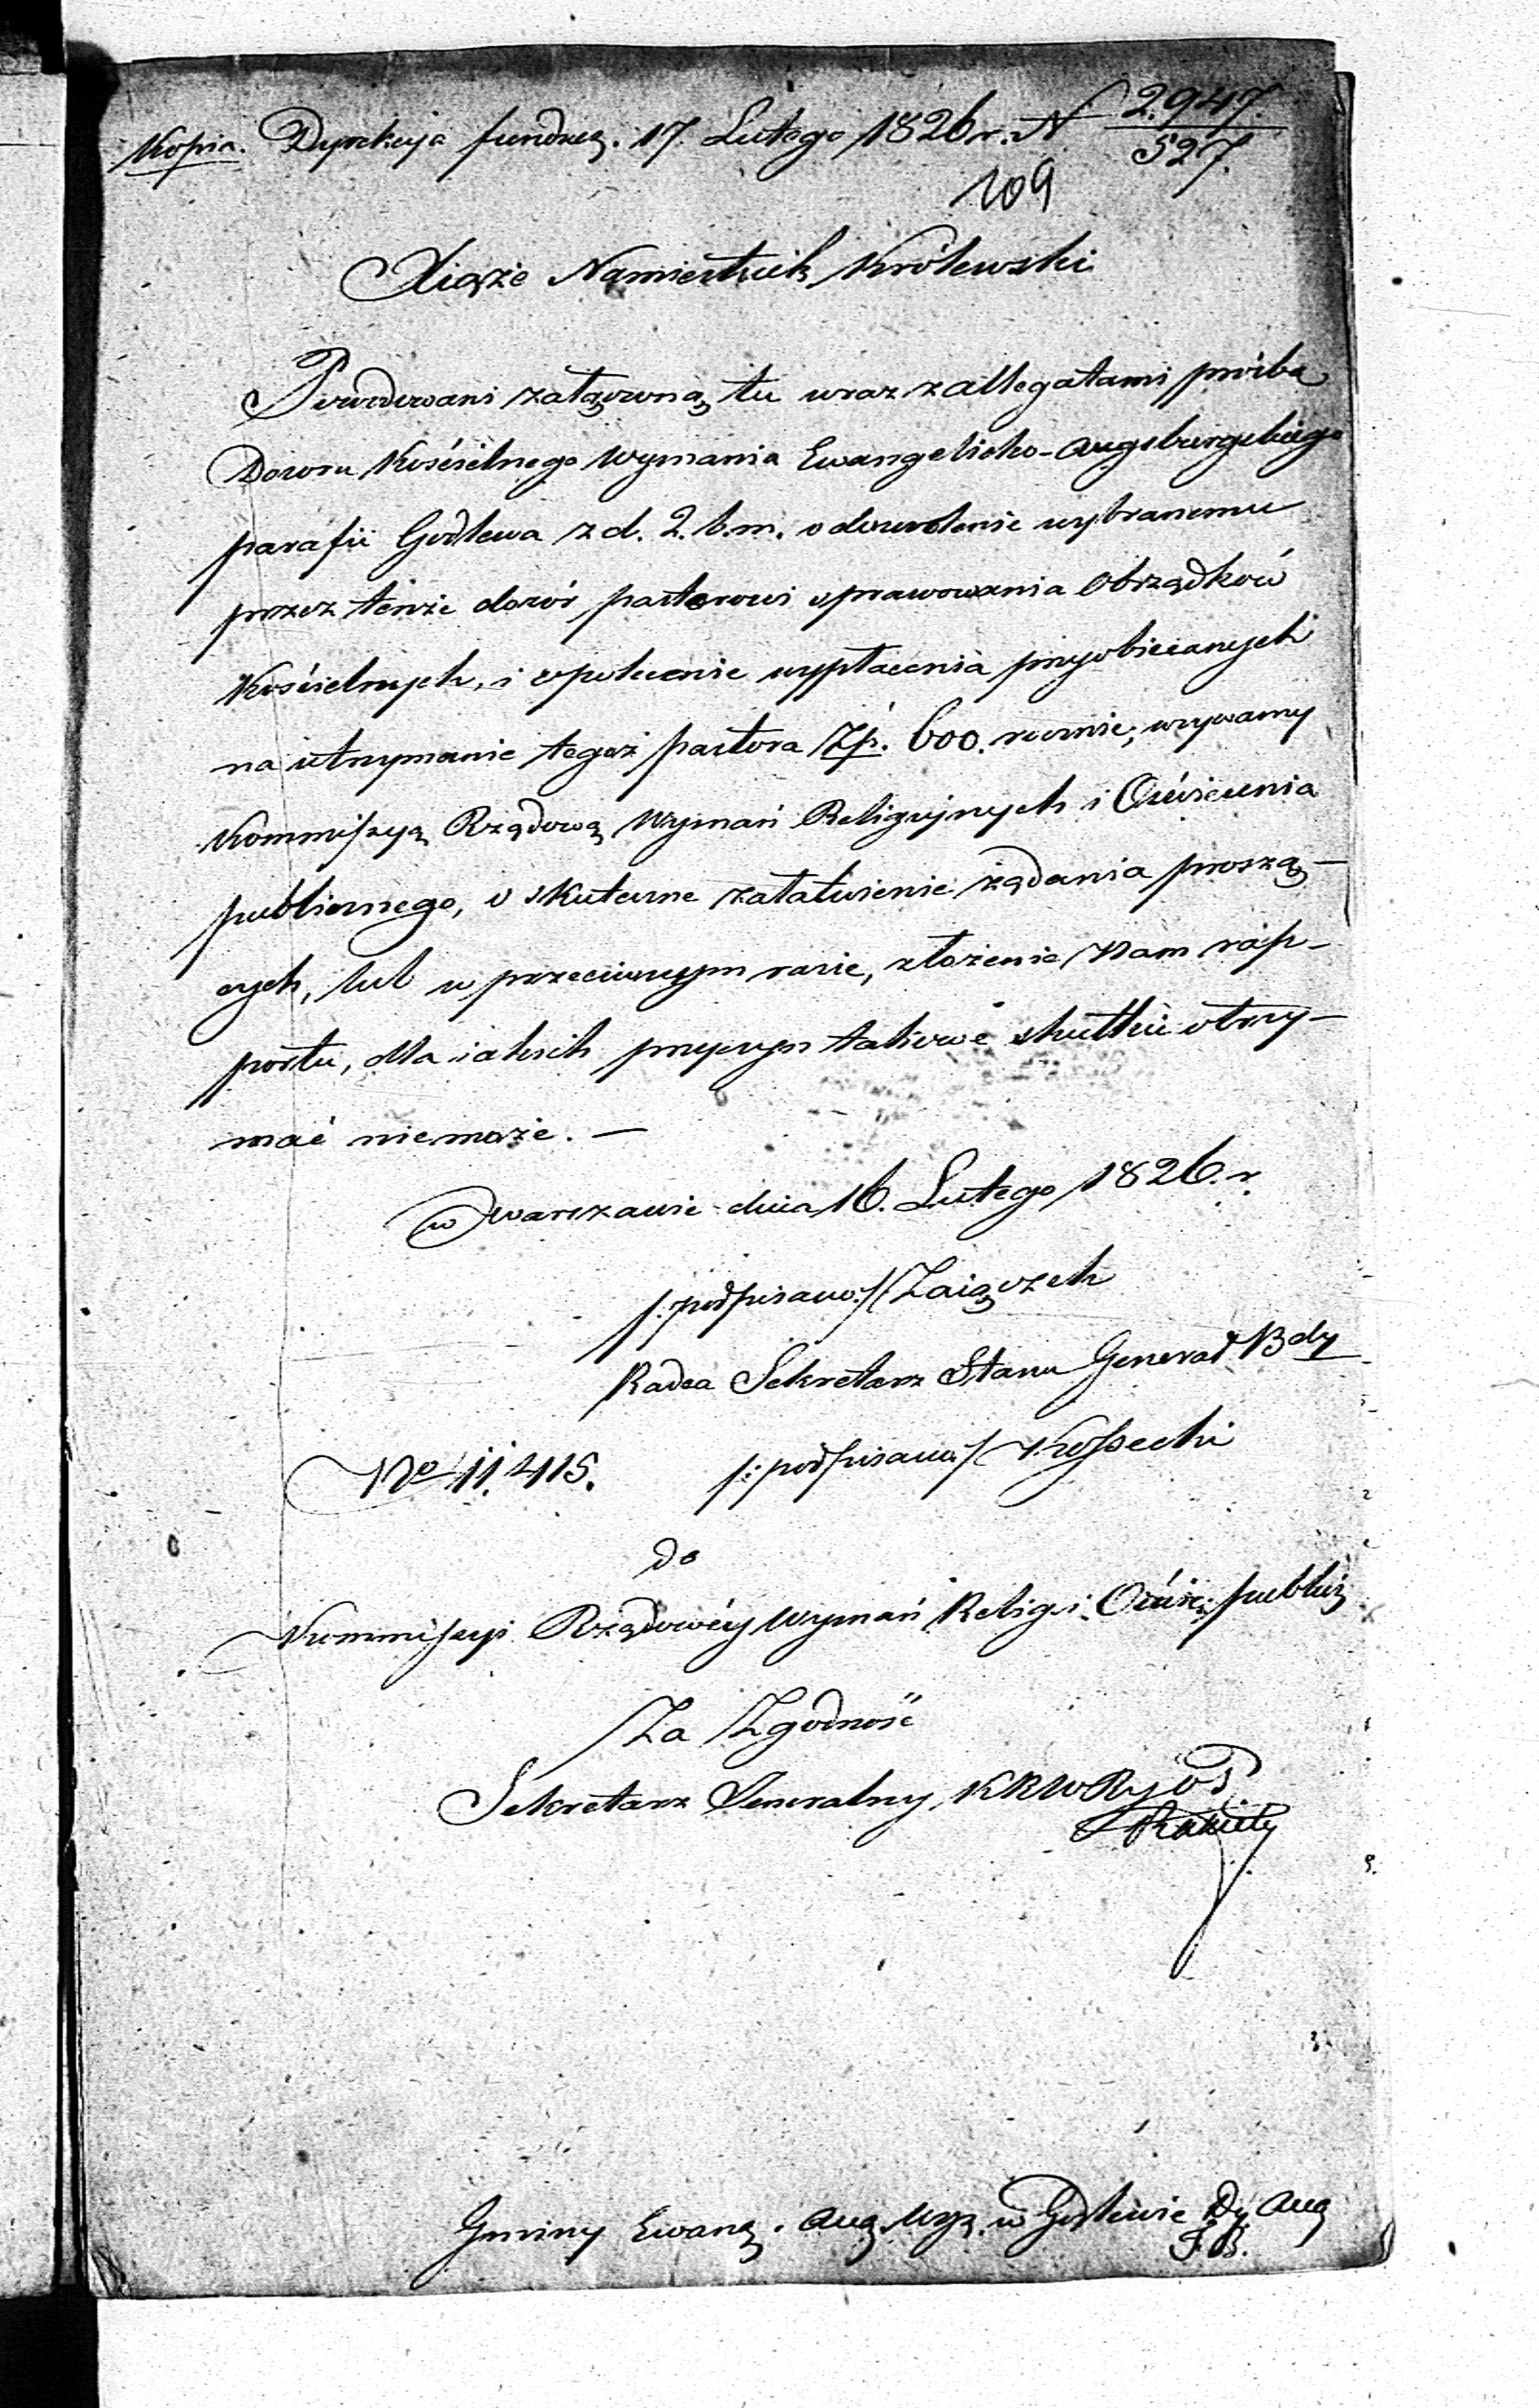 Kopia. Dyrekcyja fundusz. 17. Lutego 1826 r. N 2947./527.
109
Xiąże Namiestnik Królewski
Powodowani załączoną tu wraz z allegatami prośbą
Dozoru Kościelnego Wyznania Ewangelicko-Augsburgskiego
parafii Godlewa z d. 2. b.m. o dozwolenie wybranemu
przez tenże dozór pastorowi sprawowania Obrządków
Kościelnych, i o polecenie wypłacenia przyobiecanych
na utrzymanie tegoż pastora Zp. 600. rocznie; wzywamy
Kommissyą Rządową Wyznań Religijnych i Oświecenia
publicznego, o skuteczne załatwienie żądania proszą-
cych, lub w przeciwnym razie, złożenie Nam rap-
portu, dla iakich przyczyn takowe skutku otrzy-
mać niemoże. —
w Warszawie dnia 16. Lutego 1826. r.
/: podpisano :/ Zaiączek
Radca Sekretarz Stanu Generał Bdy
No 11.415. /: podpisano :/ Kossecki
do
Kommissyi Rządowéy Wyznań Relig. i Oświec. publicz
Za Zgodność
Sekretarz Generalny KRWR y OP.
Gminy Ewang. Aug. Wyz. w Godlewie Dy Aug